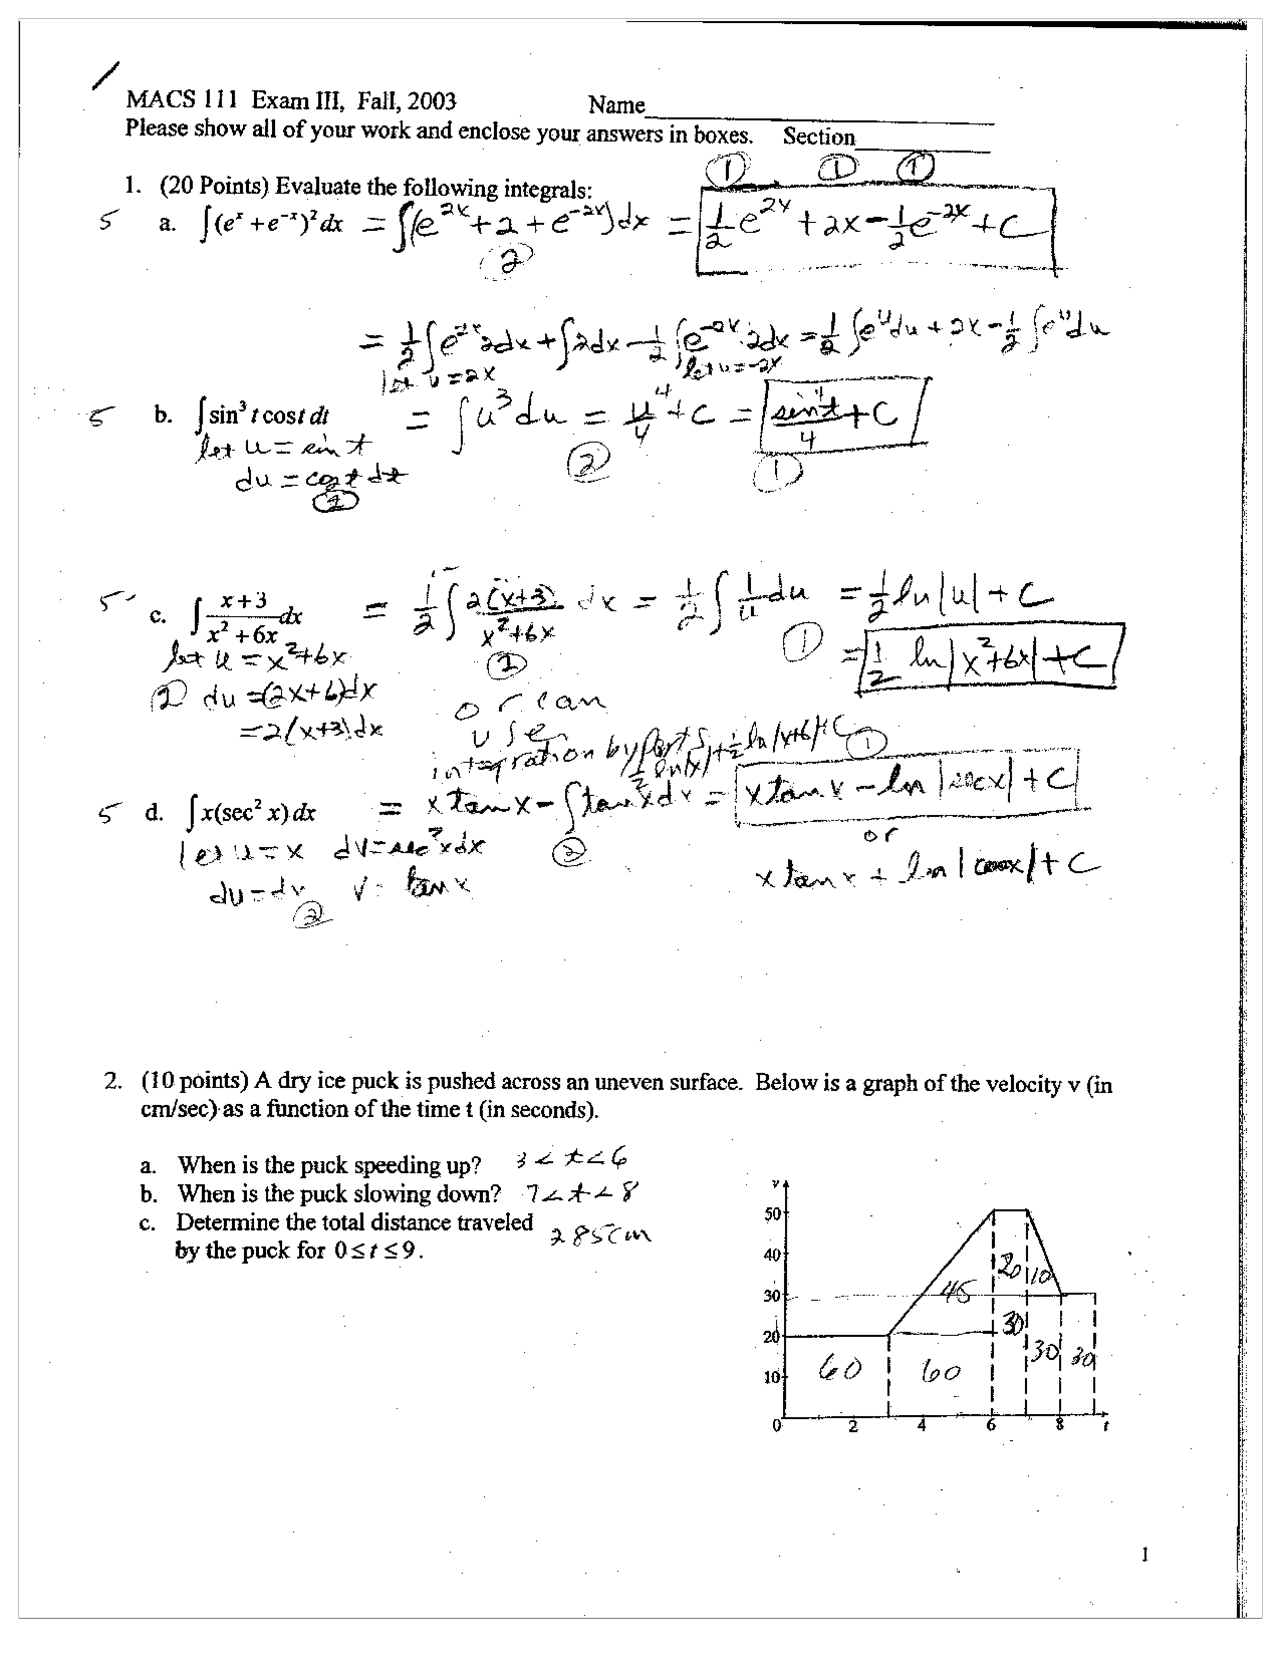 MACS 111 Exam III, Fall, 2003 Name
Please show all of your work and enclose your answers in boxes. Section
① ① ①
1. (20 Points) Evaluate the following integrals:
5 a. ∫(e^x + e^-x)² dx = ∫(e^2x + 2 + e^-2x)dx = 1/2 e^2x + 2x - 1/2 e^-2x + C
②
= 1/2 ∫e^2x 2dx + ∫2dx - 1/2 ∫e^-2x 2dx = 1/2 ∫e^u du + 2x - 1/2 ∫e^u du
let u = 2x let u = -2x
5 b. ∫sin³ t cos t dt = ∫u³ du = u⁴/4 + C = sin⁴t/4 + C
let u = sin t
② ①
du = cos t dt
②
5 c. ∫ (x+3)/(x²+6x) dx = 1/2 ∫ 2(x+3)/(x²+6x) dx = 1/2 ∫ 1/u du = 1/2 ln|u| + C
let u = x²+6x ② ① = 1/2 ln|x²+6x| + C
② du = (2x+6)dx or can
= 2(x+3)dx use
integration by parts 1/2 ln|x| + 1/2 ln|x+6| + C ①
5 d. ∫x(sec² x) dx = x tan x - ∫tan x dx = x tan x - ln|sec x| + C
let u = x dv = sec²x dx ② or
du = dx v = tan x x tan x + ln|cos x| + C
②
2. (10 points) A dry ice puck is pushed across an uneven surface. Below is a graph of the velocity v (in
cm/sec) as a function of the time t (in seconds).
a. When is the puck speeding up? 3 < t < 6
b. When is the puck slowing down? 7 < t < 8
c. Determine the total distance traveled 285 cm
by the puck for 0 ≤ t ≤ 9.
v
50
40 20 10
30 45
20 30
10 60 60 30 30
0 2 4 6 8 t
1